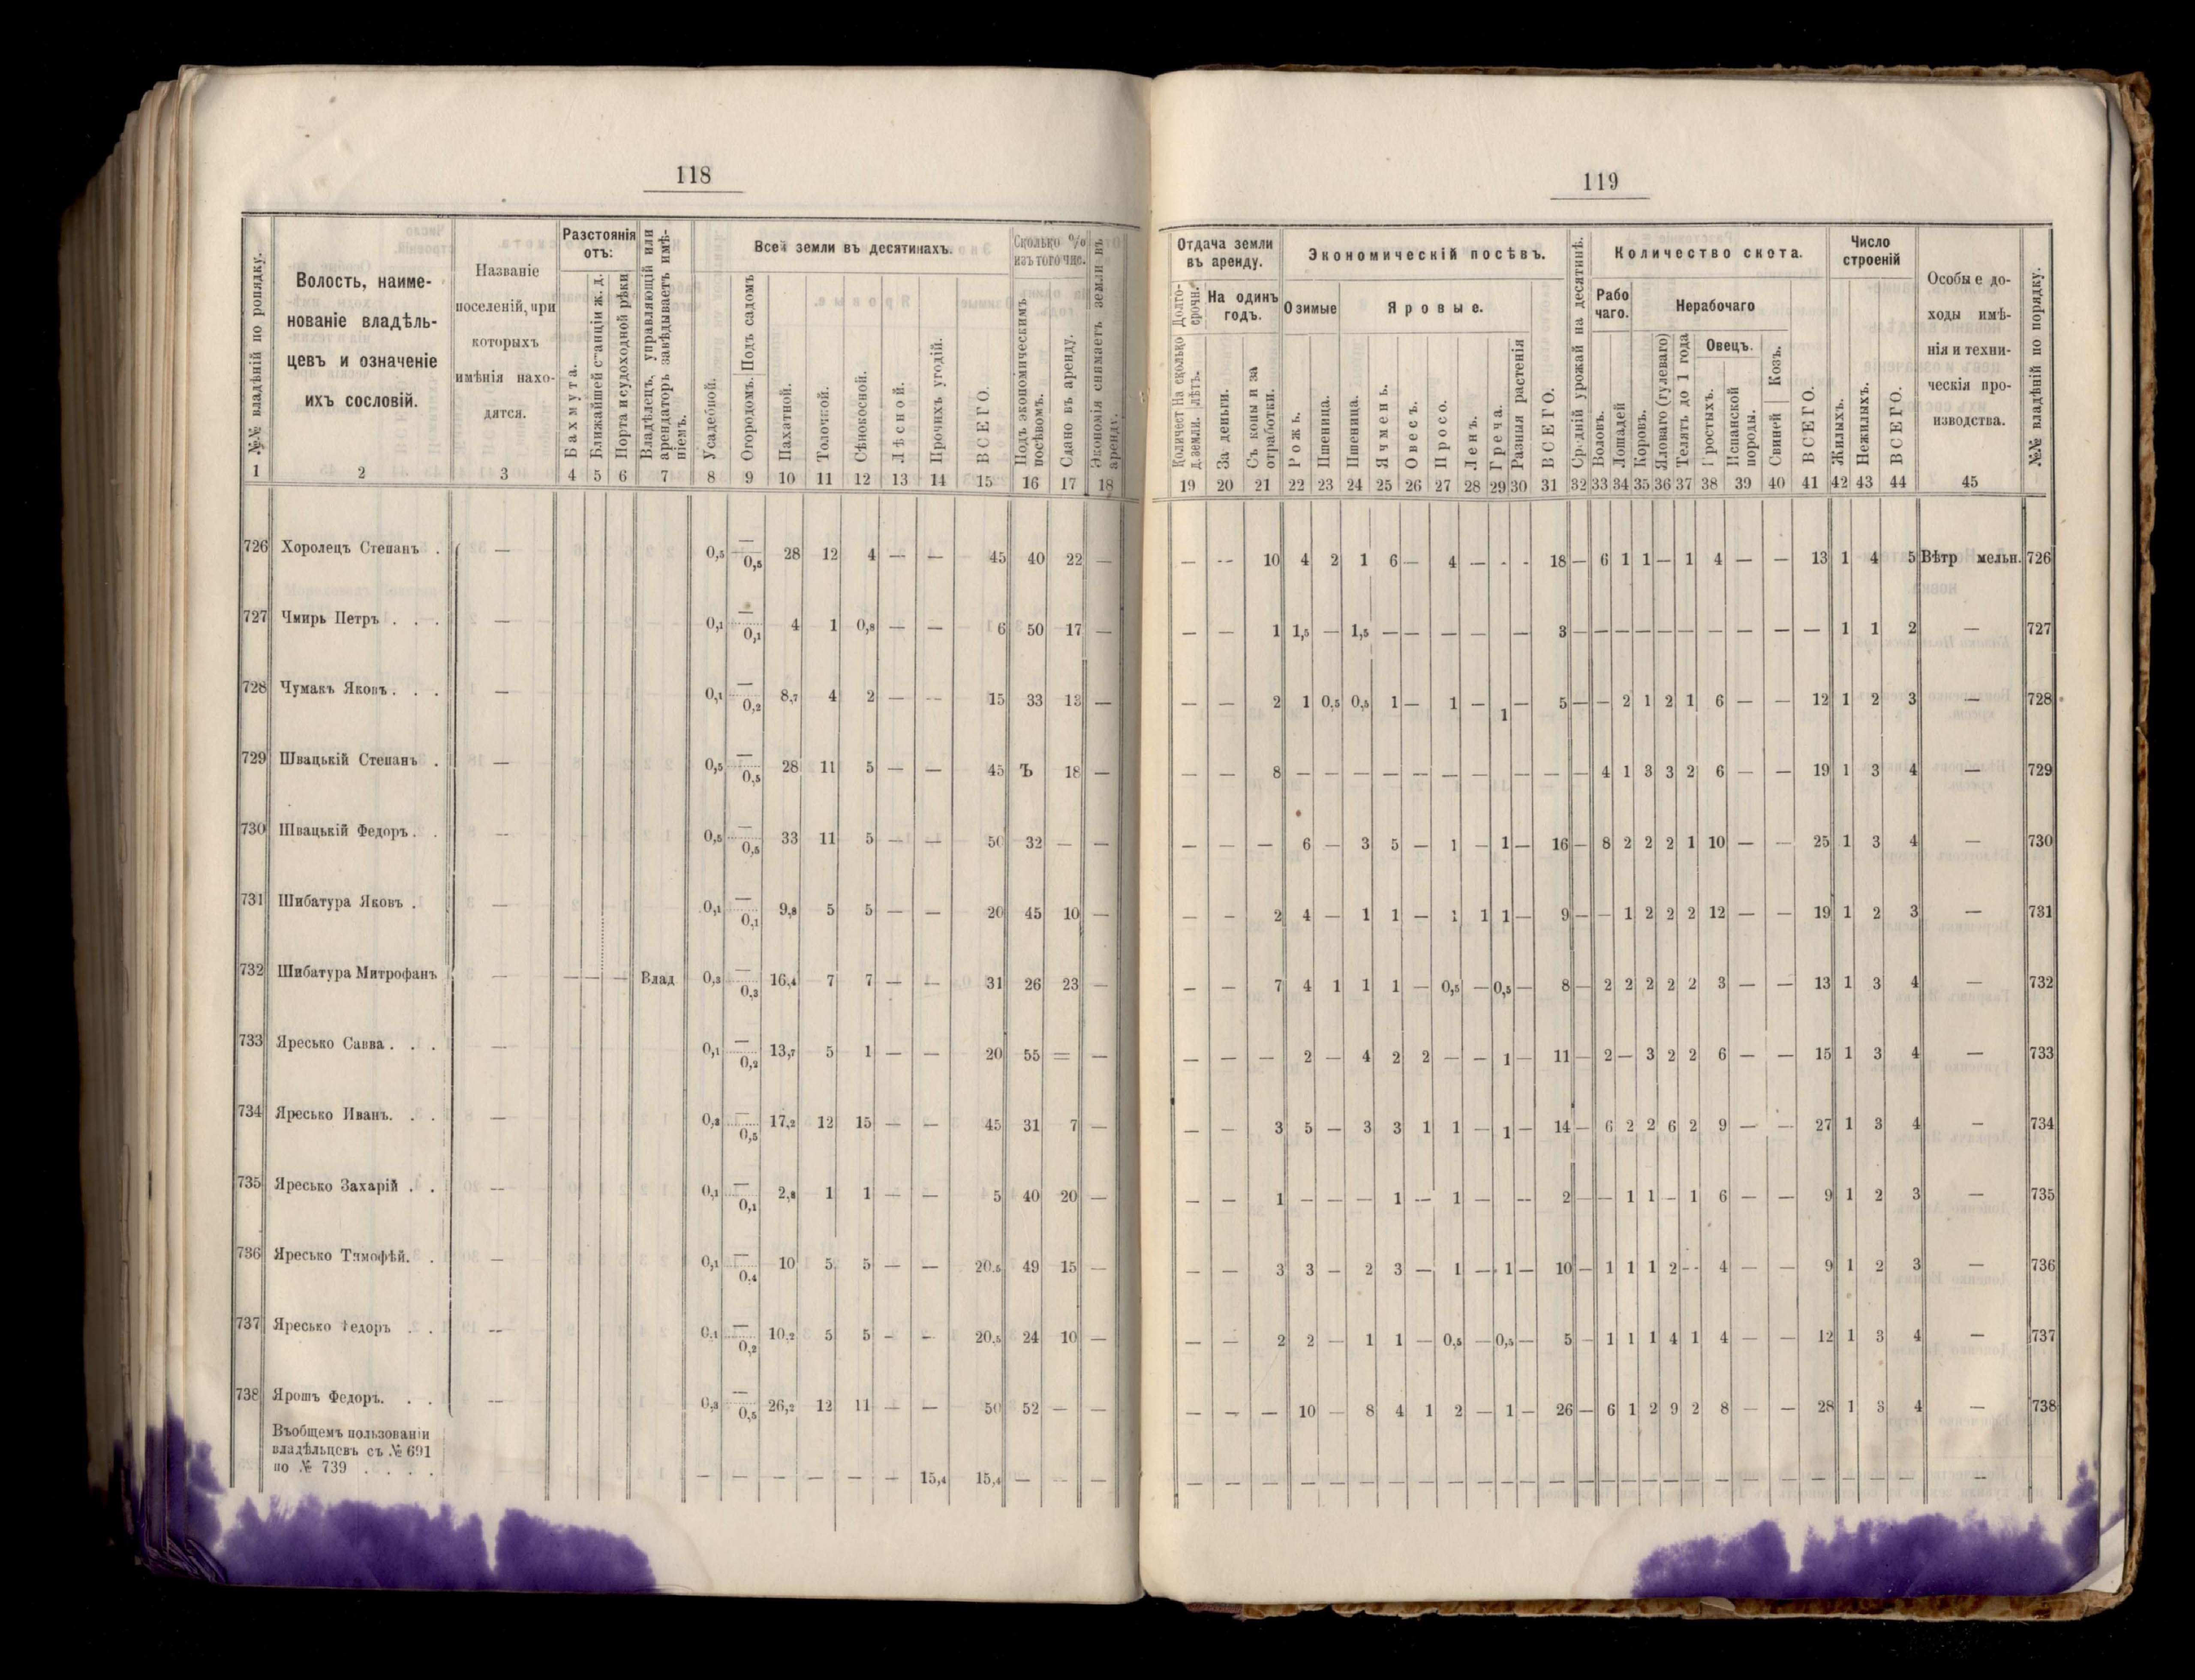 118
№№ владѣній по порядку.
Волость, наиме-
нованіе владѣль-
цевъ и означеніе
ихъ сословій.
Названіе
поселеній, при
которыхъ
имѣнія нахо-
дятся.
Разстоянія
отъ:
Бахмута.
Ближайшей станціи ж. д.
Порта и судоходной рѣки
Владѣлецъ, управляющій или
арендаторъ завѣдываетъ имѣ-
ніемъ.
Всей земли въ десятинахъ.
Усадебной.
Огородомъ. Подъ садомъ
Пахатной.
Толочной.
Сѣнокосной.
Лѣсной.
Прочихъ угодій.
ВСЕГО.
Сколько %
изъ того чис.
Подъ экономическимъ
посѣвомъ.
Сдано въ аренду.
Экономія снимаетъ земли въ
аренду.
1 2 3 4 5 6 7 8 9 10 11 12 13 14 15 16 17 18
726 Хоролецъ Степанъ . — 0,5 — 0,5 28 12 4 — — 45 40 22 —
727 Чмирь Петръ . . . — 0,1 — 0,1 4 1 0,8 — — 6 50 17 —
728 Чумакъ Яковъ . . . — 0,1 — 0,2 8,7 4 2 — — 15 33 13 —
729 Швацькій Степанъ . — 0,5 — 0,5 28 11 5 — — 45 Ъ 18 —
730 Швацькій Федоръ . . — 0,5 — 0,5 33 11 5 — — 50 32 — —
731 Шибатура Яковъ . — 0,1 — 0,1 9,8 5 5 — — 20 45 10 —
732 Шибатура Митрофанъ — — — — Влад 0,3 — 0,3 16,4 7 7 — — 31 26 23 —
733 Яресько Савва . . . — 0,1 — 0,2 13,7 5 1 — — 20 55 = —
734 Яресько Иванъ. . . — 0,3 — 0,5 17,2 12 15 — — 45 31 7 —
735 Яресько Захарій . . — 0,1 — 0,1 2,8 1 1 — — 5 40 20 —
736 Яресько Тимофѣй. . — 0,1 — 0,4 10 5 5 — — 20,5 49 15 —
737 Яресько Федоръ . . — 0,1 — 0,2 10,2 5 5 — — 20,5 24 10 —
738 Ярошъ Федоръ. . . — 0,3 — 0,5 26,2 12 11 — — 50 52 — —
Въ общемъ пользованіи
владѣльцевъ съ № 691
по № 739 . . . . — — — — — — 15,4 15,4 — — —
119
Отдача земли
въ аренду.
Долго-
срочн.
Количест
д. земли.
На сколько
лѣтъ.
На одинъ
годъ.
За деньги.
Съ копы и за
отработки.
Экономическій посѣвъ.
Озимые
Рожь.
Пшеница.
Яровые.
Пшеница.
Ячмень.
Овесъ.
Просо.
Ленъ.
Греча.
Разныя растенія
ВСЕГО.
Средній урожай на десятинѣ.
Количество скота.
Рабо
чаго.
Воловъ.
Лошадей
Нерабочаго
Коровъ.
Яловаго (гулеваго)
Телятъ до 1 года
Овецъ.
Простыхъ.
Испанской
породы.
Свиней
Козъ.
ВСЕГО.
Число
строеній
Жилыхъ.
Нежилыхъ.
ВСЕГО.
Особые до-
ходы имѣ-
нія и техни-
ческія про-
изводства.
№№ владѣній по порядку.
19 20 21 22 23 24 25 26 27 28 29 30 31 32 33 34 35 36 37 38 39 40 41 42 43 44 45
— -- 10 4 2 1 6 — 4 — - - 18 — 6 1 1 — 1 4 — — 13 1 4 5 Вѣтр мельн. 726
— — 1 1,5 — 1,5 — — — — — 3 — — — — — — — — — — 1 1 2 — 727
— — 2 1 0,5 0,5 1 — 1 — 1 — 5 — — 2 1 2 1 6 — — 12 1 2 3 — 728
— — 8 — — — — — — — — — — — 4 1 3 3 2 6 — — 19 1 3 4 — 729
— — — 6 — 3 5 — 1 — 1 — 16 — 8 2 2 2 1 10 — — 25 1 3 4 — 730
— — 2 4 — 1 1 — 1 1 1 — 9 — — 1 2 2 2 12 — — 19 1 2 3 — 731
— — 7 4 1 1 1 — 0,5 — 0,5 — 8 — 2 2 2 2 2 3 — — 13 1 3 4 — 732
— — — 2 — 4 2 2 — — 1 — 11 — 2 — 3 2 2 6 — — 15 1 3 4 — 733
— — 3 5 — 3 3 1 1 — 1 — 14 — 6 2 2 6 2 9 — — 27 1 3 4 — 734
— — 1 — — — 1 — 1 — — 2 — — 1 1 — 1 6 — — 9 1 2 3 — 735
— — 3 3 — 2 3 — 1 — 1 — 10 — 1 1 1 2 -- 4 — — 9 1 2 3 — 736
— — 2 2 — 1 1 — 0,5 — 0,5 — 5 — 1 1 1 4 1 4 — — 12 1 3 4 — 737
— — — 10 — 8 4 1 2 — 1 — 26 — 6 1 2 9 2 8 — — 28 1 3 4 — 738
— — — — — — — — — — — — — — — — — — — — — — — — — — —